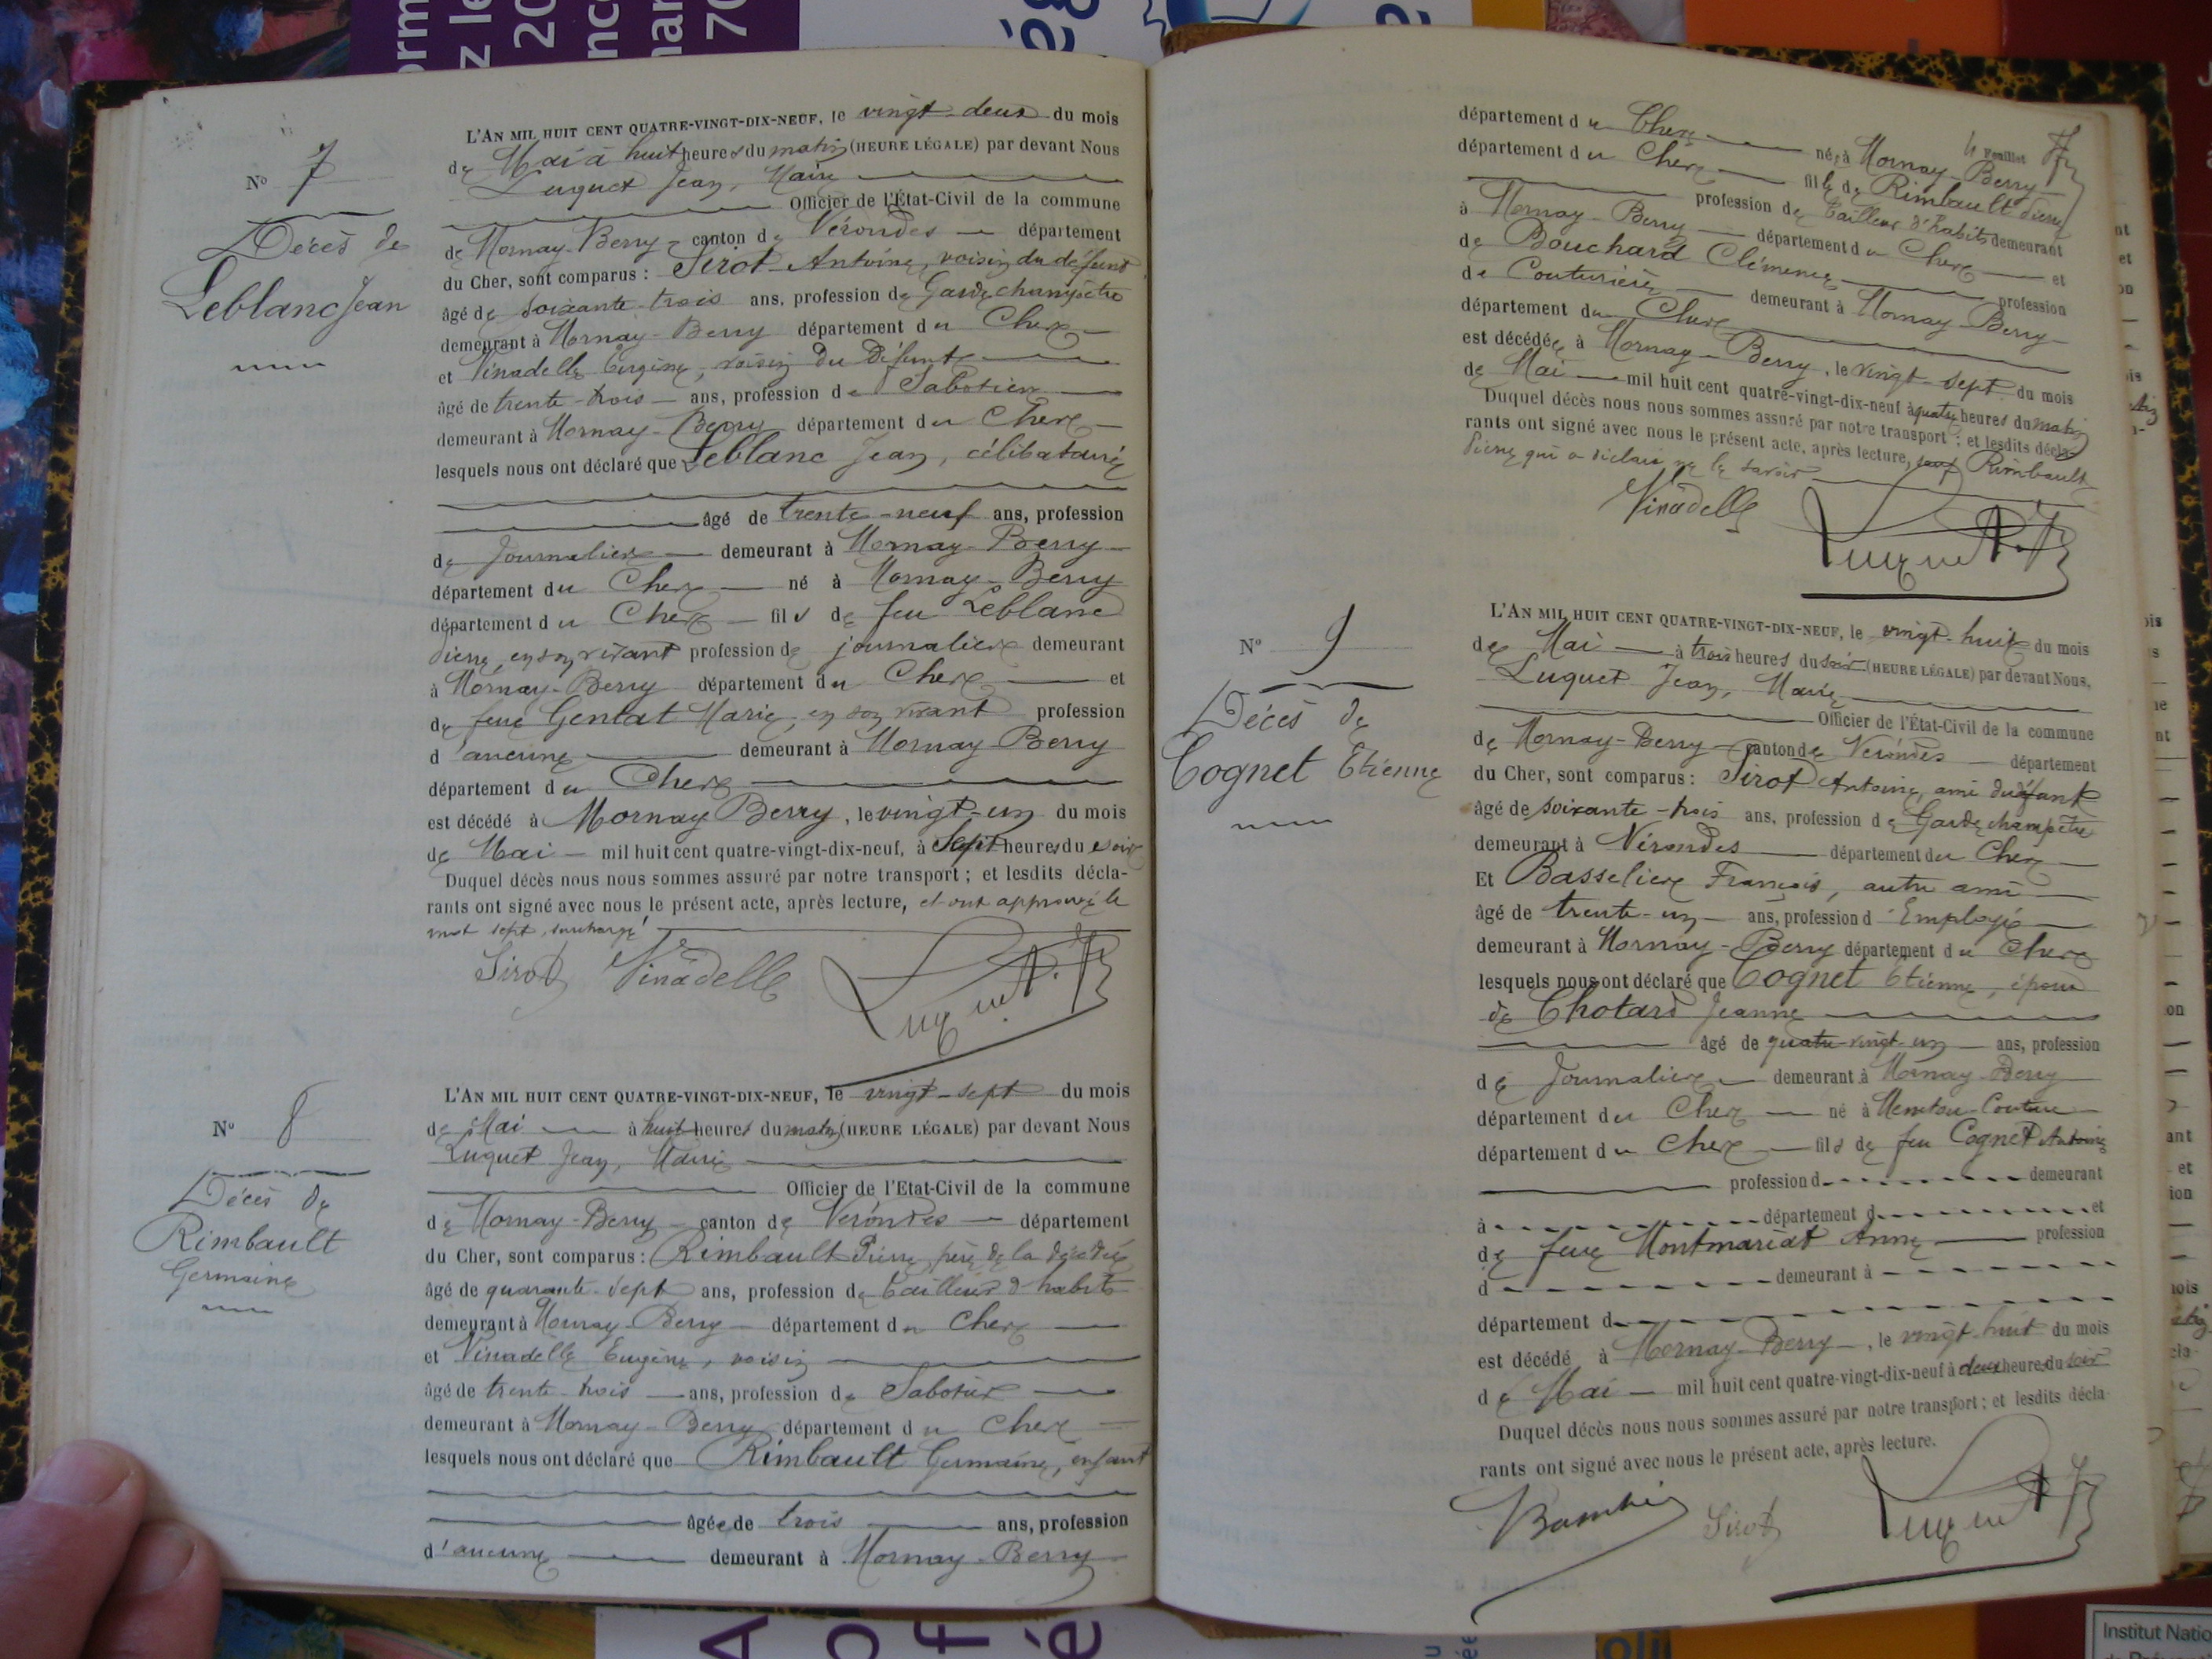 N° 7
Décès de
Leblanc Jean
L'AN MIL HUIT CENT QUATRE-VINGT-DIX-NEUF, le vingt-deux du mois
de Mai à huit heures du matin (HEURE LÉGALE) par devant Nous
Luquet Jean, Maire
Officier de l'État-Civil de la commune
de Mornay-Berry canton de Nérondes département
du Cher, sont comparus : Sirot Antoine, voisin du défunt
âgé de soixante-trois ans, profession de Garde champêtre
demeurant à Mornay-Berry département du Cher
et Vinadelle Eugène, voisin du défunt
âgé de trente-trois ans, profession de Sabotier
demeurant à Mornay-Berry département du Cher
lesquels nous ont déclaré que Leblanc Jean, célibataire
âgé de trente-neuf ans, profession
de Journalier demeurant à Mornay-Berry
département du Cher né à Mornay-Berry
département du Cher fils de feu Leblanc
Pierre, en son vivant profession de journalier demeurant
à Mornay-Berry département du Cher et
de feue Genlat Marie, en son vivant profession
d'aucune demeurant à Mornay-Berry
département du Cher
est décédé à Mornay Berry, le vingt-un du mois
de Mai mil huit cent quatre-vingt-dix-neuf, à Sept heures du soir
Duquel décès nous nous sommes assuré par notre transport ; et lesdits décla-
rants ont signé avec nous le présent acte, après lecture, et ont approuvé le
mot sept, surchargé
Sirot Vinadelle Luquet
N° 8
Décès de
Rimbault
Germaine
L'AN MIL HUIT CENT QUATRE-VINGT-DIX-NEUF, le vingt-sept du mois
de Mai à huit heures du matin (HEURE LÉGALE) par devant Nous
Luquet Jean, Maire
Officier de l'Etat-Civil de la commune
de Mornay-Berry canton de Nérondes département
du Cher, sont comparus : Rimbault Pierre, père de la décédée
âgé de quarante-sept ans, profession de Tailleur d'habits
demeurant à Mornay-Berry département du Cher
et Vinadelle Eugène, voisin
âgé de trente-trois ans, profession de Sabotier
demeurant à Mornay-Berry département du Cher
lesquels nous ont déclaré que Rimbault Germaine, enfant
âgée de trois ans, profession
d'aucune demeurant à Mornay-Berry
4e Feuillet
département du Cher née à Mornay-Berry
département du Cher fille de Rimbault Pierre
profession de Tailleur d'habits demeurant
à Mornay-Berry département du Cher et
de Bouchard Clémence profession
de Couturière demeurant à Mornay-Berry
département du Cher
est décédée à Mornay-Berry, le vingt-sept du mois
de Mai mil huit cent quatre-vingt-dix-neuf à quatre heures du matin
Duquel décès nous nous sommes assuré par notre transport ; et lesdits décla-
rants ont signé avec nous le présent acte, après lecture, sauf Rimbault
Pierre qui a déclaré ne le savoir
Vinadelle Luquet
N° 9
Décès de
Cognet Etienne
L'AN MIL HUIT CENT QUATRE-VINGT-DIX-NEUF, le vingt-huit du mois
de Mai à trois heures du soir (HEURE LÉGALE) par devant Nous,
Luquet Jean, Maire
Officier de l'État-Civil de la commune
de Mornay-Berry canton de Nérondes département
du Cher, sont comparus : Sirot Antoine, ami du défunt
âgé de soixante-trois ans, profession de Garde champêtre
demeurant à Nérondes département du Cher
Et Basselier François, autre ami
âgé de trente-un ans, profession d'Employé
demeurant à Mornay-Berry département du Cher
lesquels nous ont déclaré que Cognet Etienne, époux
de Chotard Jeanne
âgé de quatre-vingt-un ans, profession
de Journalier demeurant à Mornay-Berry
département du Cher né à Menetou-Couture
département du Cher fils de feu Cognet Antoine
profession d demeurant
à département d et
de feue Montmariat Anne profession
d demeurant à
département d
est décédé à Mornay-Berry, le vingt-huit du mois
de Mai mil huit cent quatre-vingt-dix-neuf à deux heures du soir
Duquel décès nous nous sommes assuré par notre transport ; et lesdits décla-
rants ont signé avec nous le présent acte, après lecture.
Sirot Luquet
Institut Natio